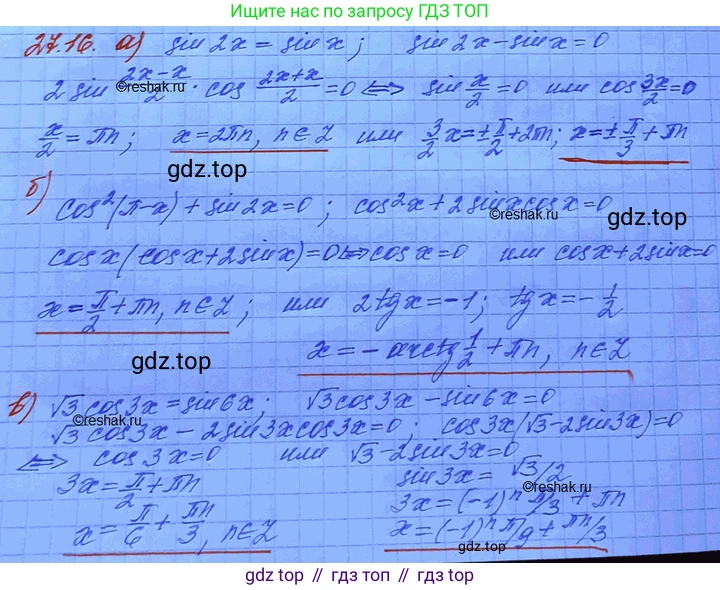 Ищите нас по запросу ГДЗ ТОП
27.16. а) sin 2x = sin x; sin 2x - sin x = 0
2 sin (2x-x)/2 · cos (2x+x)/2 = 0 <=> sin x/2 = 0 или cos 3x/2 = 0
©reshak.ru ©reshak.ru
x/2 = πn; x = 2πn, n ∈ Z или 3/2 x = ± π/2 + 2πn; x = ± π/3 + πn
gdz.top
б) cos²(π-x) + sin 2x = 0; cos²x + 2 sin x cos x = 0
©reshak.ru gdz.top
cos x (cos x + 2 sin x) = 0 <=> cos x = 0 или cos x + 2 sin x = 0
x = π/2 + πn, n ∈ Z; или 2 tg x = -1; tg x = - 1/2
gdz.top
x = - arctg 1/2 + πn, n ∈ Z
в) √3 cos 3x = sin 6x; √3 cos 3x - sin 6x = 0
©reshak.ru
√3 cos 3x - 2 sin 3x cos 3x = 0; cos 3x (√3 - 2 sin 3x) = 0
<=> cos 3x = 0 или √3 - 2 sin 3x = 0
3x = π/2 + πn sin 3x = √3/2
©reshak.ru
3x = (-1)ⁿ π/3 + πn
x = π/6 + πn/3, n ∈ Z x = (-1)ⁿ π/9 + πn/3
gdz.top
gdz.top // гдз топ // gdz.top